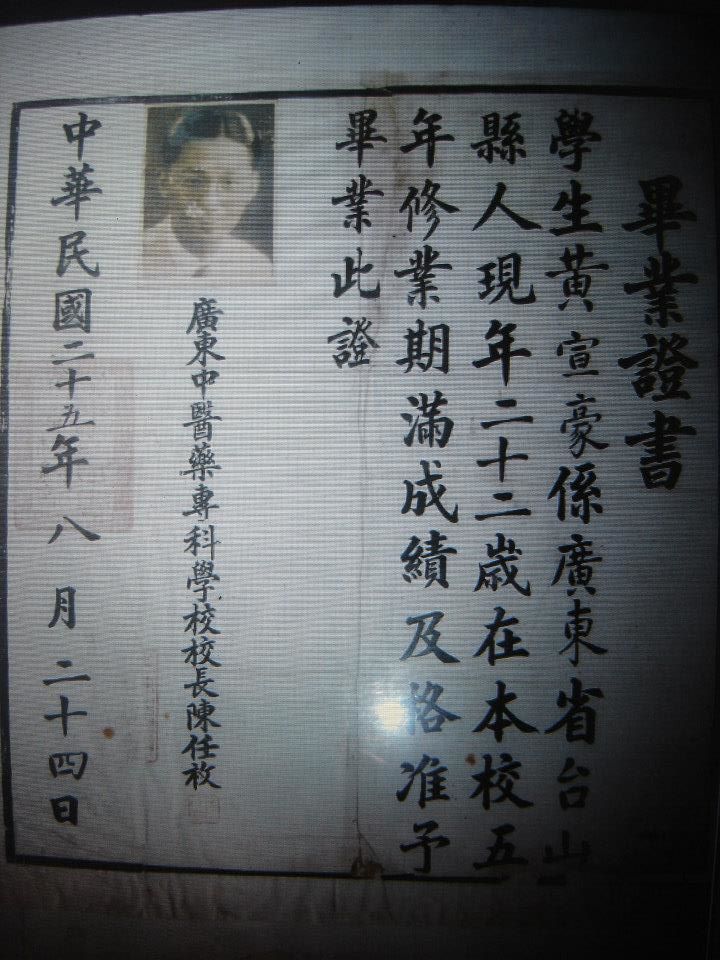 畢業證書
學生黃宣豪係廣東省台山
縣人現年二十二歲在本校五
年修業期滿成績及格准予
畢業此證
廣東中醫藥專科學校校長陳任枚
中華民國二十五年八月二十四日